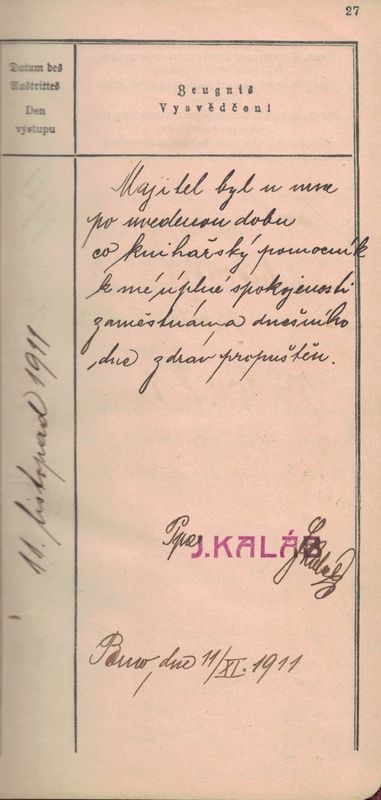 27
Datum des
Austrittes
Den
výstupu
Zeugnis
Vysvědčení
Majitel byl u mne
po uvedenou dobu
co knihařský pomocník
k mé úplné spokojenosti
zaměstnán a dnešního
dne zdráv propuštěn.
11. listopad 1911
J. KALÁB
Brno, dne 11/XI. 1911